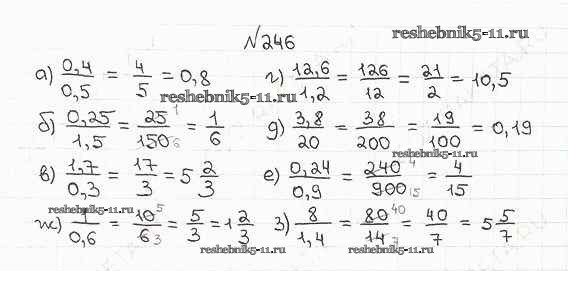 №246
reshebnik5-11.ru
а) 0,4/0,5 = 4/5 = 0,8 г) 12,6/1,2 = 126/12 = 21/2 = 10,5
reshebnik5-11.ru
б) 0,25/1,5 = 25 1/150 6 = 1/6 д) 3,8/20 = 38/200 = 19/100 = 0,19
reshebnik5-11.ru
в) 1,7/0,3 = 17/3 = 5 2/3 е) 0,24/0,9 = 240 4/900 15 = 4/15
reshebnik5-11.ru
ж) 1/0,6 = 10 5/6 3 = 5/3 = 1 2/3 з) 8/1,4 = 80 40/14 7 = 40/7 = 5 5/7
reshebnik5-11.ru reshebnik5-11.ru